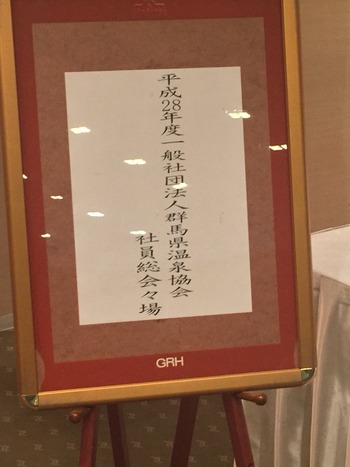 平成28年度一般社団法人群馬県温泉協会
社員総会々場
GRH